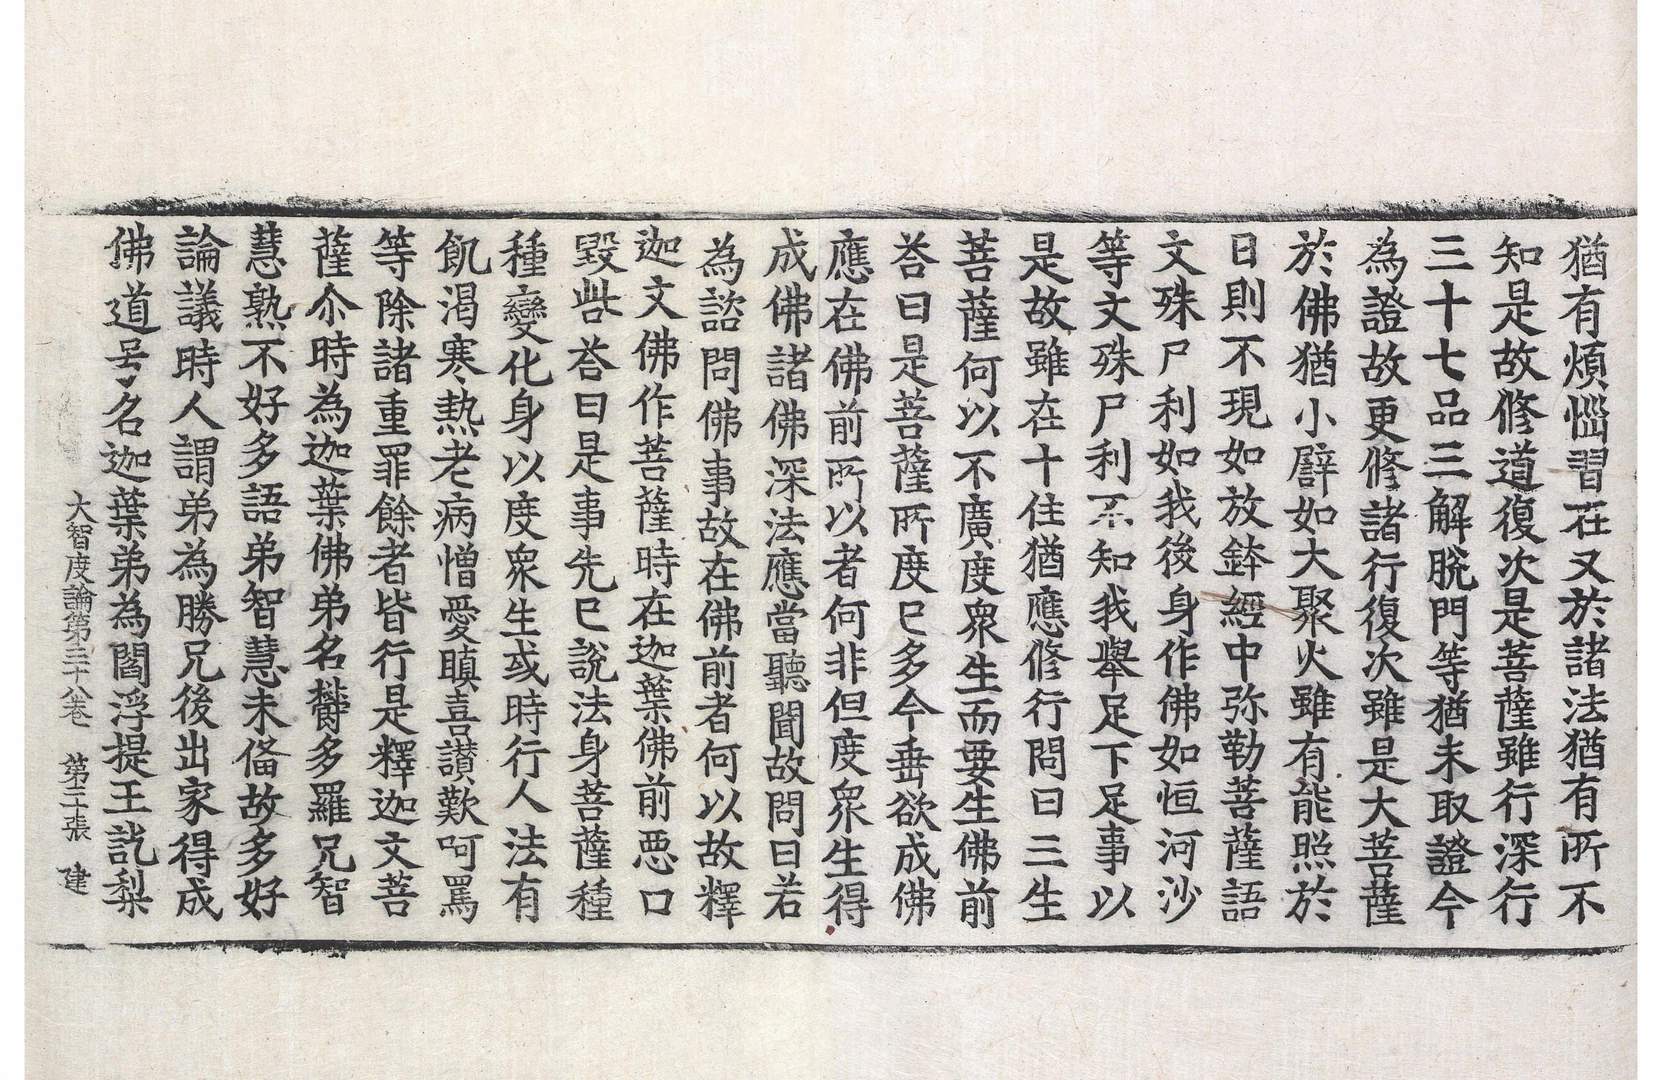 猶有煩惱習在又於諸法猶有所不
知是故修道復次是菩薩雖行深行
三十七品三解脫門等猶未取證今
為證故更修諸行復次雖是大菩薩
於佛猶小譬如大聚火雖有能照於
日則不現如放鉢經中弥勒菩薩語
文殊尸利如我後身作佛如恒河沙
等文殊尸利不知我舉足下足事以
是故雖在十住猶應修行問曰三生
菩薩何以不廣度衆生而要生佛前
荅曰是菩薩所度已多今垂欲成佛
應在佛前所以者何非但度衆生得
成佛諸佛深法應當聽聞故問曰若
為諮問佛事故在佛前者何以故釋
迦文佛作菩薩時在迦葉佛前惡口
毀呰荅曰是事先已說法身菩薩種
種變化身以度衆生或時行人法有
飢渴寒熱老病憎愛瞋喜讃歎呵罵
等除諸重罪餘者皆行是釋迦文菩
薩尒時為迦葉佛弟名欝多羅兄智
慧熟不好多語弟智慧未俻故多好
論議時人謂弟為勝兄後出家得成
佛道号名迦葉弟為閻浮提王訖梨
大智度論第三十八卷 第三十張 建